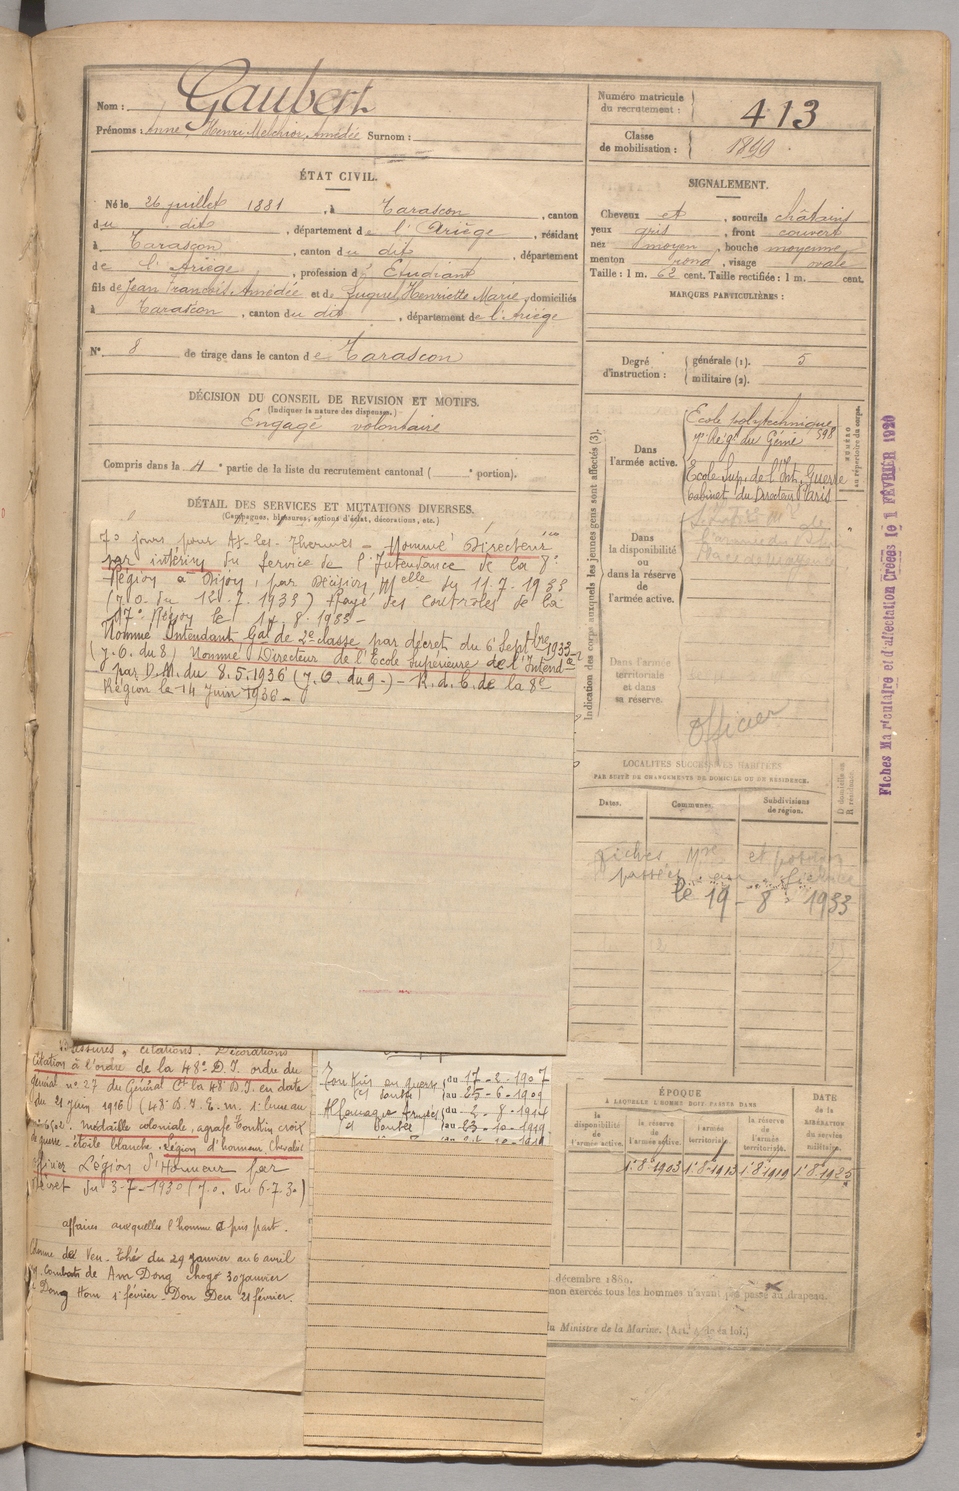 Nom : Gaubert
Prénoms : Anne, Henri Melchior Amédée Surnom :
Numéro matricule du recrutement : 413
Classe de mobilisation : 1899.
ÉTAT CIVIL.
Né le 26 juillet 1881, à Tarascon, canton
du dit, département de l'Ariège, résidant
à Tarascon, canton du dit, département
de l'Ariège, profession d' Étudiant
fils de Jean François Amédée et de Henriette Marie, domiciliés
à Tarascon, canton du dit, département de l'Ariège
N° 8 de tirage dans le canton de Tarascon
SIGNALEMENT.
Cheveux et, sourcils châtains
yeux gris, front couvert
nez moyen, bouche moyenne,
menton rond, visage ovale
Taille : 1 m. 62 cent. Taille rectifiée : 1 m. cent.
MARQUES PARTICULIÈRES :
Degré d'instruction : générale (1). 5
militaire (2).
DÉCISION DU CONSEIL DE REVISION ET MOTIFS.
(Indiquer la nature des dispenses.)
Engagé volontaire
Compris dans la 4e partie de la liste du recrutement cantonal ( e portion).
DÉTAIL DES SERVICES ET MUTATIONS DIVERSES.
(Campagnes, blessures, actions d'éclat, décorations, etc.)
jours pour Ax-les-Thermes - Nommé Directeur
par intérim du Service de l'Intendance de la 8e
Région à Dijon, par Décision Melle du 11.7.1933
(J.O. du 12.7.1933) Rayé des contrôles de la
17e Région le 17.8.1933 -
Nommé Intendant Gal de 2e classe par décret du 6 Septbre 1933
(J.O. du 8) Nommé Directeur de l'Ecole Supérieure de l'Intendce
par D.M. du 8.5.1936 (J.O. du 9-) - R.d.C. de la 8e
Région le 14 Juin 1936 -
Indication des corps auxquels les jeunes gens sont affectés (3).
NUMÉRO au répertoire du corps.
Dans l'armée active.
Ecole polytechnique
7e Régt du Génie 598
Ecole Sup. de l'Int. Guerre
Cabinet du Directeur Paris
Dans la disponibilité ou dans la réserve de l'armée active.
Dans l'armée territoriale et dans sa réserve.
Officier
Fiches Matriculaire et d'affectation Créées le 1 FÉVRIER 1920
LOCALITÉS SUCCESSIVES HABITÉES
PAR SUITE DE CHANGEMENTS DE DOMICILE OU DE RÉSIDENCE.
Dates. Communes. Subdivisions de région. D domicile ou R résidence.
fiches Mre et
passées
le 19 - 8 - 1933
Blessures, citations. Décorations
Citation à l'ordre de la 48e D.I. ordre du
général n° 27 du Général Ct la 48e D.I. en date
du 21 juin 1916 (48e D.I. E.m. 1e bureau
Médaille coloniale, agrafe Tonkin croix
de guerre - étoile blanche. Légion d'honneur Chevalier
officier Légion d'Honneur par
Décret du 3-7-1930 (J.O. du 6-7.30)
affaires auxquelles l'homme a pris part.
Colonne de Yen-Thé du 29 janvier au 6 avril
combats de Am Dong 30 janvier
Dong Hom 1e février - Don Den 21 février.
Tonkin en guerre du 17-2-1907
au 25-6-1909
Allemagne du 2-8-1914
au 23-10-1919
ÉPOQUE
À LAQUELLE L'HOMME DOIT PASSER DANS
la disponibilité de l'armée active. la réserve de l'armée active. l'armée territoriale. la réserve de l'armée territoriale.
DATE de la LIBÉRATION du service militaire.
1e 8e 1903 1e 8 1913 1e 8 1919 1e 8 1925
décembre 1880.
non exercés tous les hommes n'ayant pas passé au drapeau.
du Ministre de la Marine. (Art. de la loi.)